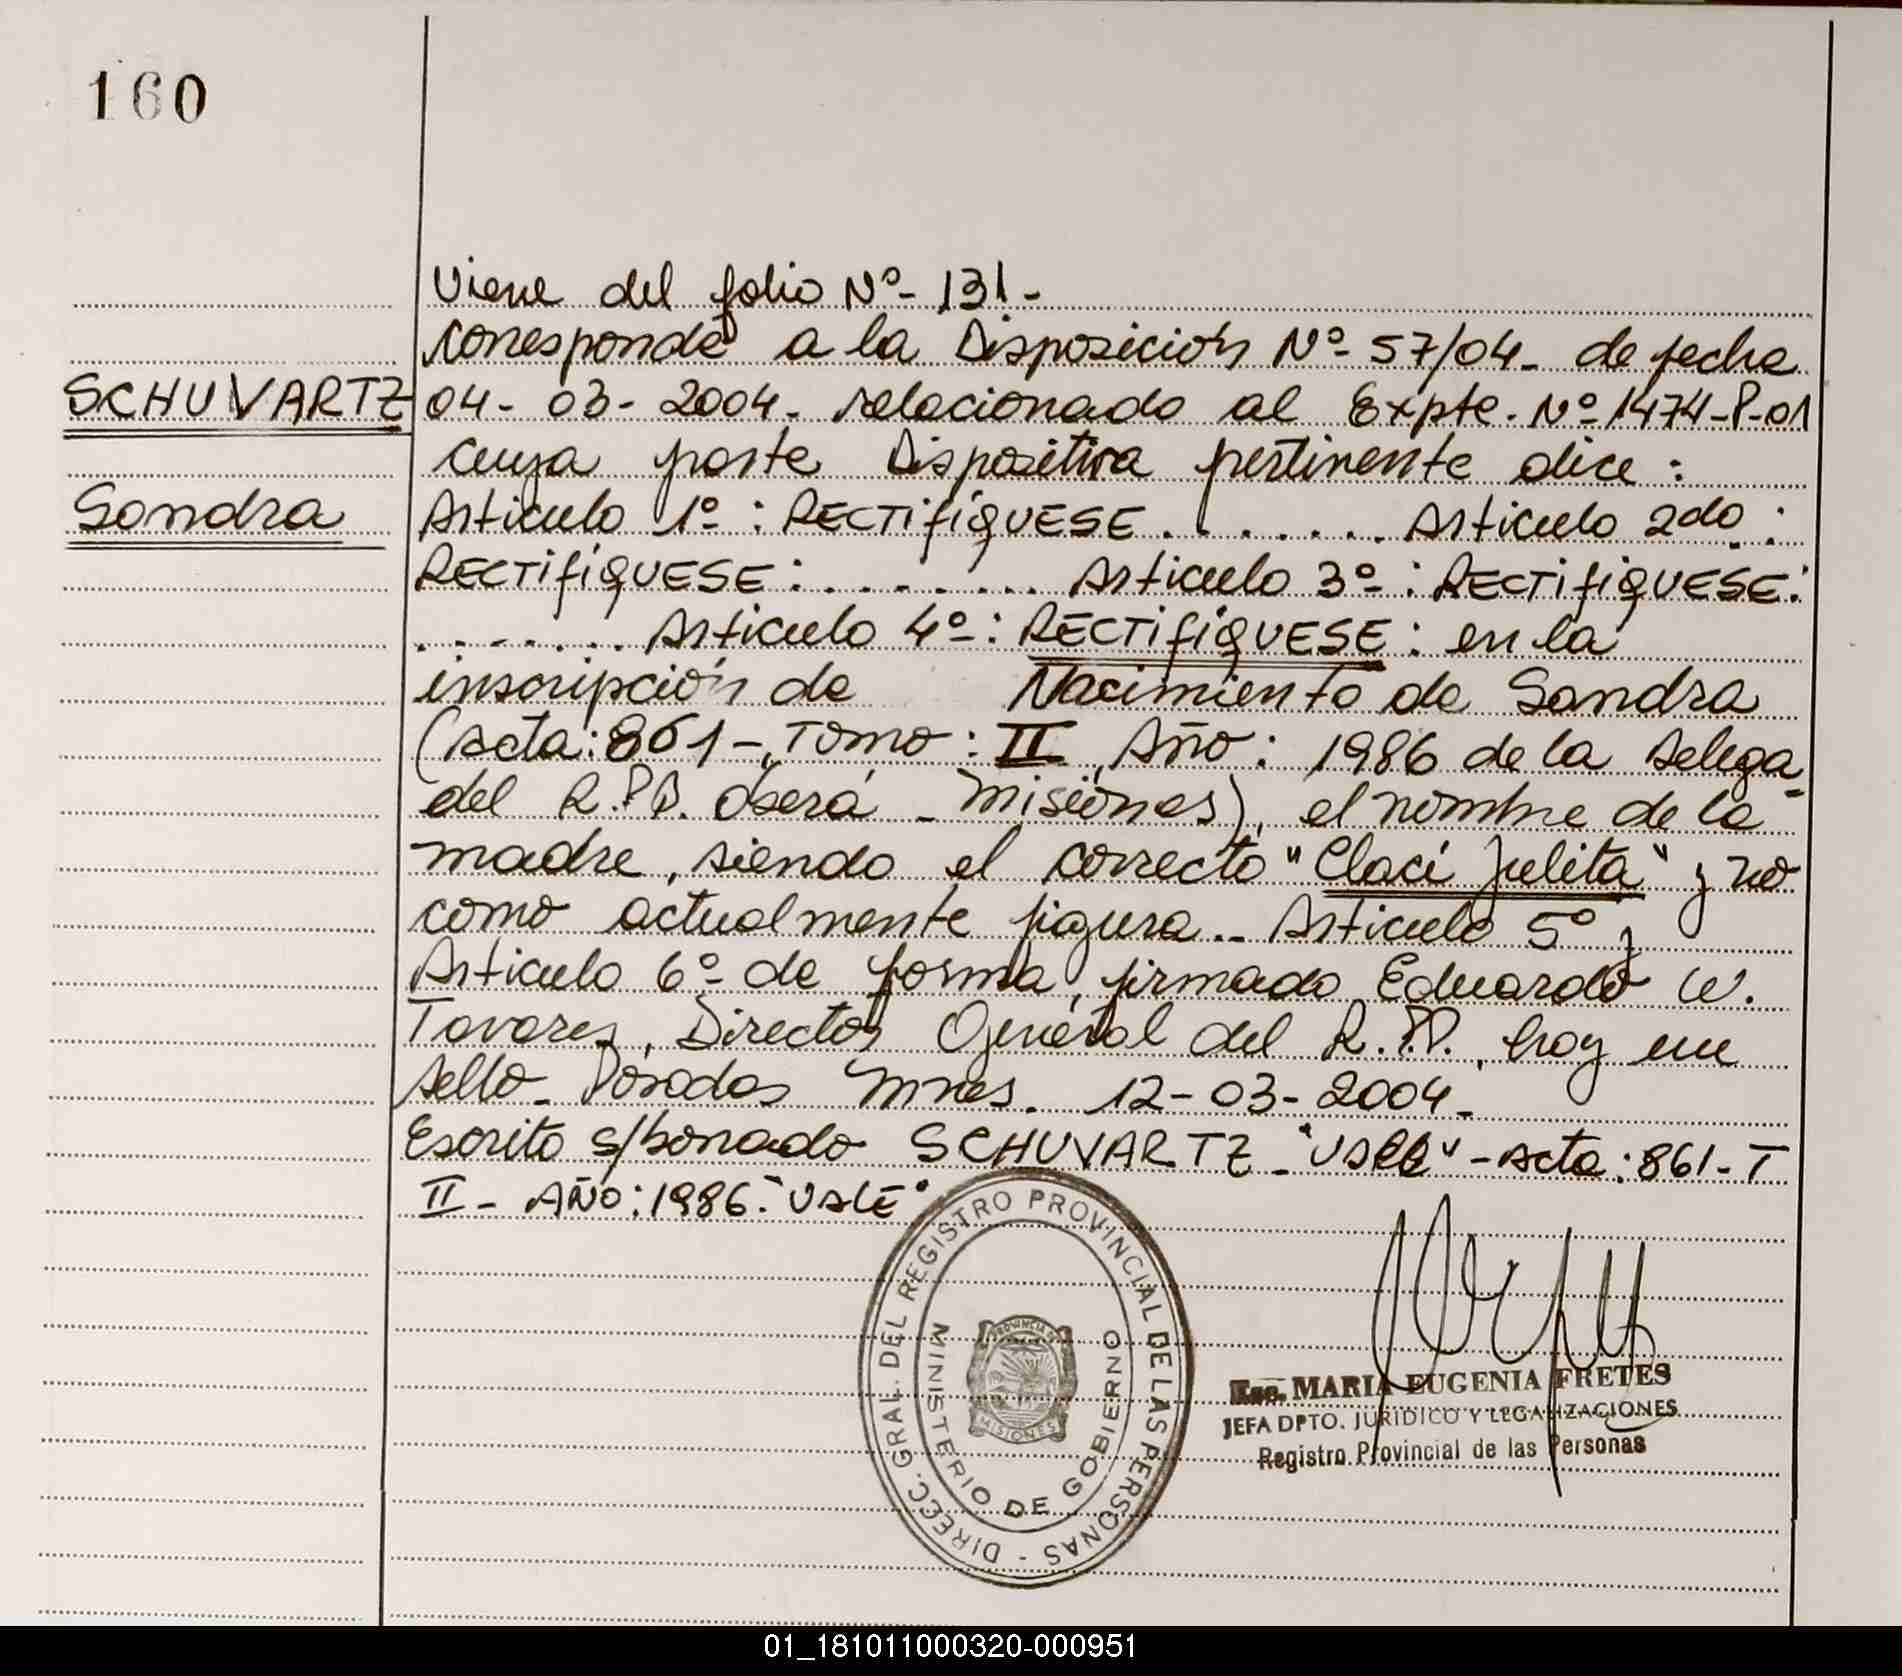 160
Viene del folio Nº- 131-
Corresponde a la Disposición Nº- 57/04- de fecha
SCHUVARTZ 04- 03- 2004- relacionado al Expte. Nº 1474-P-01
cuya parte Dispositiva pertinente dice:
Sandra Articulo 1º: RECTIFÍQUESE....... Articulo 2do:
RECTIFÍQUESE:......... Articulo 3º: RECTIFÍQUESE:
....... Articulo 4º: RECTIFÍQUESE: en la
inscripción de Nacimiento de Sandra
(Acta: 861-, Tomo: II, Año: 1986 de la Delega
del R.P.P. Oberá - Misiones), el nombre de la
madre, siendo el correcto "Claci Julita" y no
como actualmente figura.- Articulo 5º y
Articulo 6º- de forma, firmado Eduardo W.
Tavares, Director General del R.P.P., hay un
sello- Posadas Mnes. 12-03-2004-
Escrito s/borrado SCHUVARTZ - "VALE" - Acta: 861- T
II- AÑO: 1986- "VALE"
DIREC. GRAL. DEL REGISTRO PROVINCIAL DE LAS PERSONAS -
MINISTERIO DE GOBIERNO
PROVINCIA DE
MISIONES
Esc. MARIA EUGENIA FRETES
JEFA DPTO. JURIDICO Y LEGALIZACIONES
Registro Provincial de las Personas
01_181011000320-000951